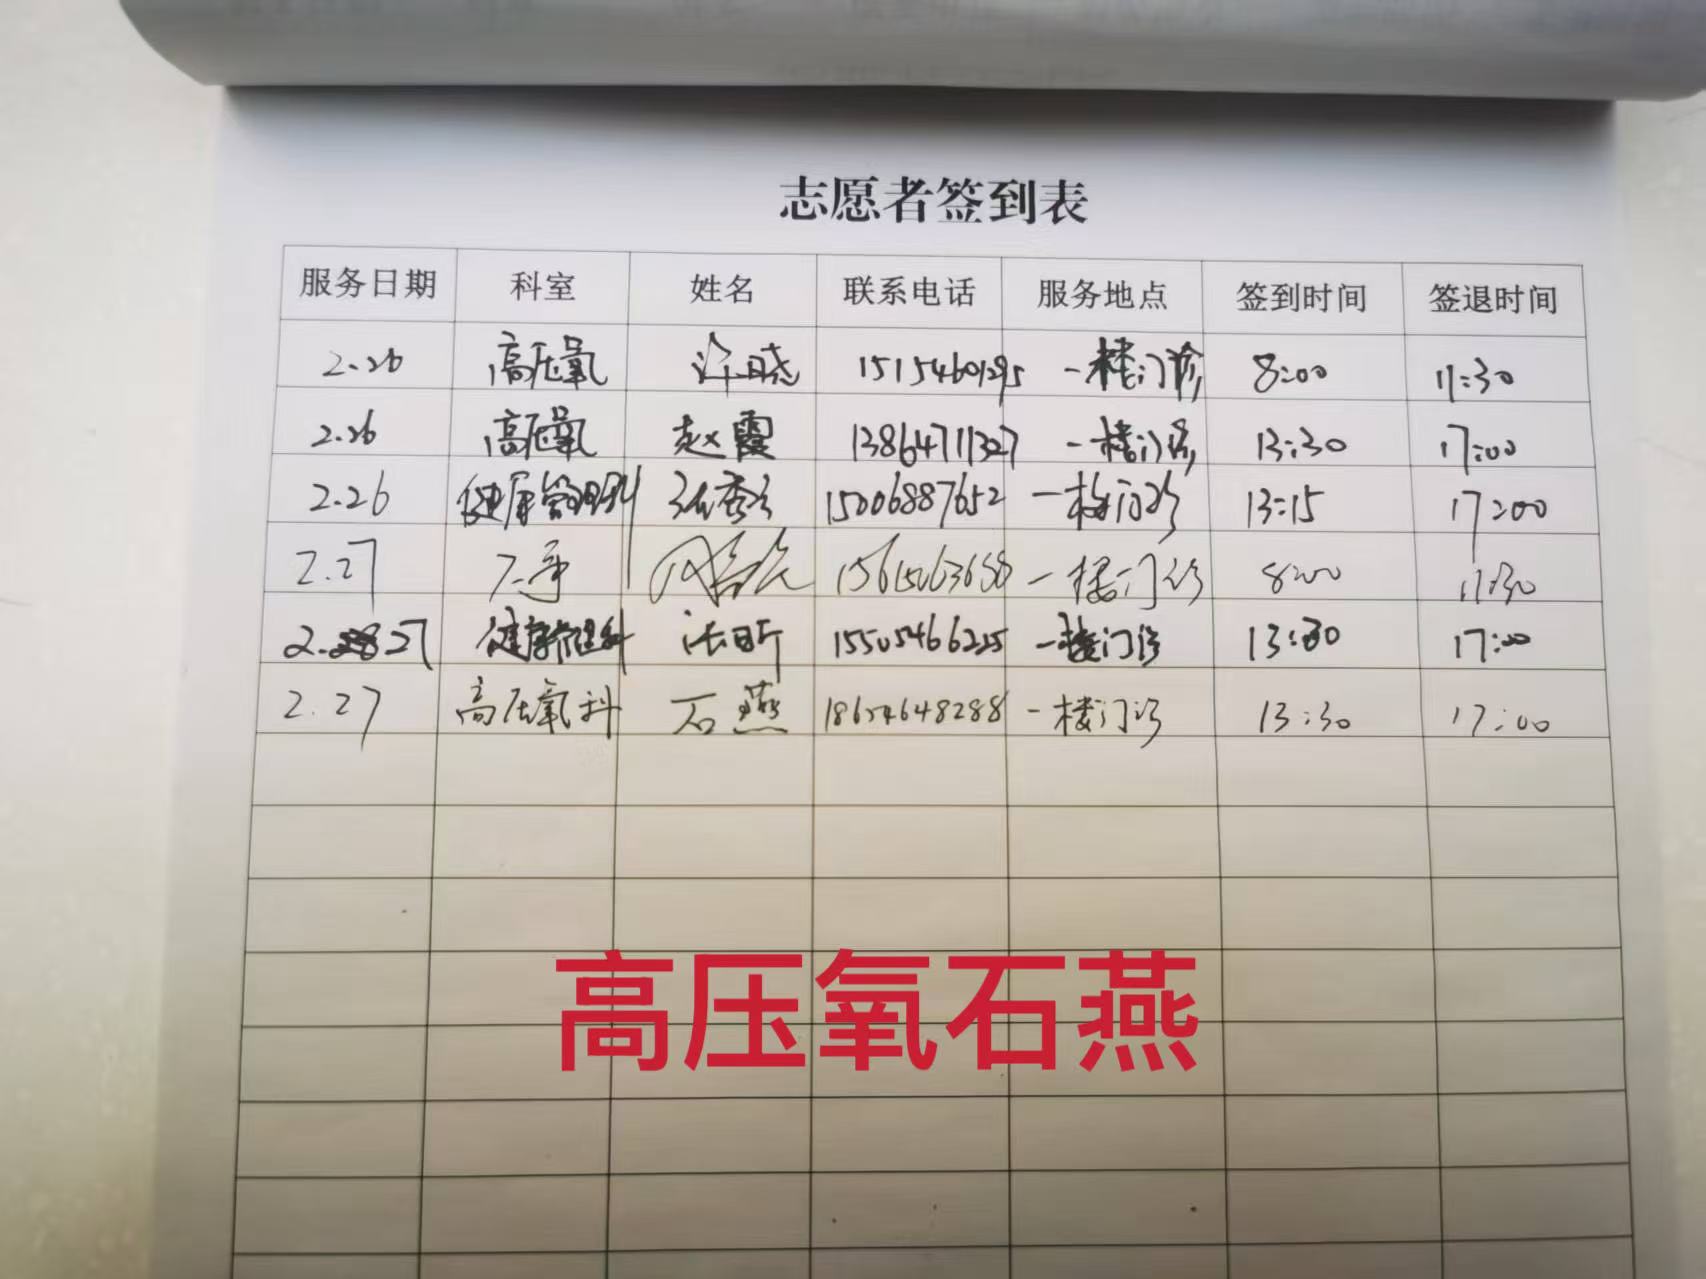 志愿者签到表
服务日期 科室 姓名 联系电话 服务地点 签到时间 签退时间
2.26 高压氧 许晓 一楼门诊 8:00 11:30
2.26 高压氧 赵霞 13864711327 一楼门诊 13:30 17:00
2.26 健康管理科 15006887652 一楼门诊 13:15 17:00
2.27 一楼门诊 8:00 11:30
2.27 健康管理科 15505466225 一楼门诊 13:30 17:00
2.27 高压氧科 石燕 18654648288 一楼门诊 13:30 17:00
高压氧石燕